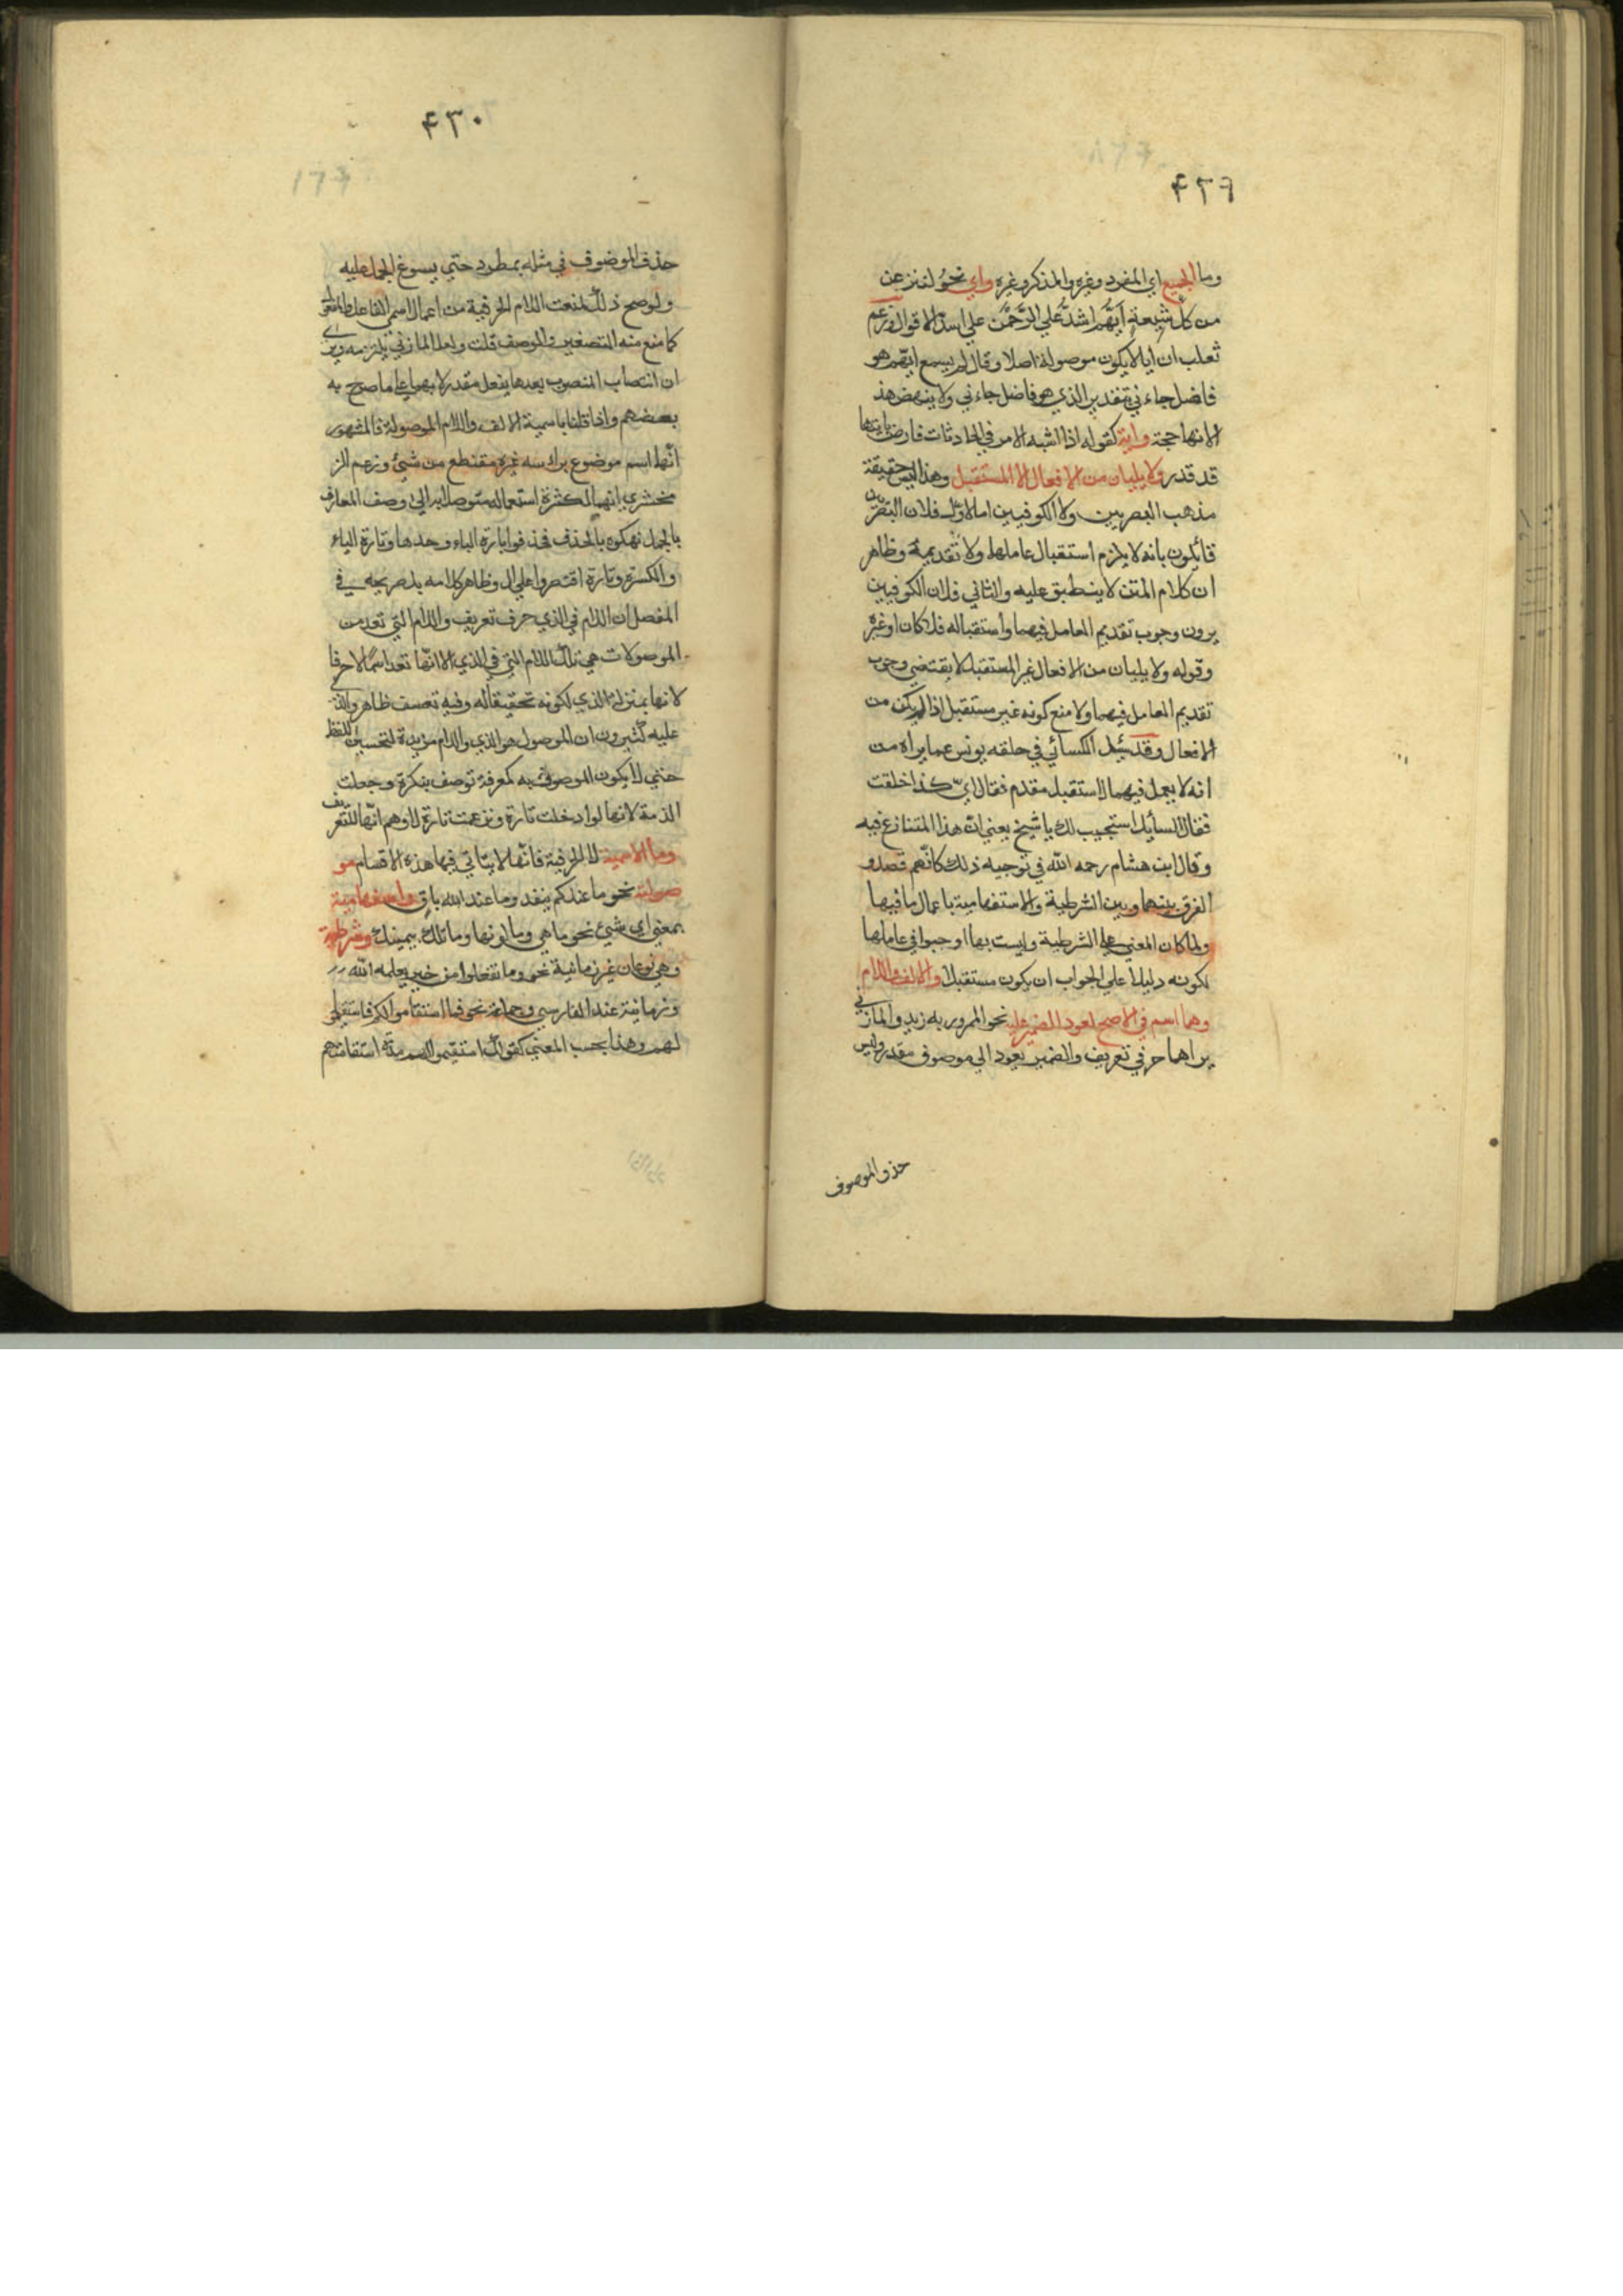 ٤٢٩
وما للجميع اي المفرد وغيره والمذكر وغيره واي نحو لننزعن
من كل شيعة ايهم اشد علي الرحمن علي اسد الاقوال وزعم
ثعلب ان ايا لا يكون موصولة اصلا وقال لم يسمع ايهم هو
فاضل جاءني بتقدير الذي هو فاضل جاءني ولا ينهض هذ
الانها حجة واية كقوله اذا اشبه الامر في الحادثات فارض بايتها
قد قدر ولا يليان من الافعال الا المستقبل وهذا ليس حقيقة
مذهب البصريين ولا الكوفيين اما الاول فلان البصريين
قائلون بانه لا يلزم استقبال عاملها ولا تقديمه وظاهر
ان كلام المتن لا ينطبق عليه والثاني فلان الكوفيين
يرون وجوب تقديم العامل فيهما واستقباله فلا كان او غيره
وقوله ولا يليان من الافعال غير المستقبل لا يقتضي وجوب
تقديم العامل فيهما ولا منع كونه غير مستقبل اذا لم يكن من
الافعال وقد سئل الكسائي في حلقه يونس عما يراه من
انه لا يعمل فيهما الا مستقبل مقدم فقال اي كذا خلقت
فقال السايل استجيب لك يا شيخ يعني ان هذا المتنازع فيه
وقال ابن هشام رحمه الله في توجيه ذلك كانهم قصدو
الفرق بينهما وبين الشرطية والاستفهامية باعمال ما فيها
ولما كان المعني علي الشرطية وليست بها اوجبوا في عاملها
لكونه دليلا علي الجواب ان يكون مستقبلا والالف واللام
وهما اسم في الاصح لعود الضمير عليه نحو الممرور به زيد والمازني
يراهما حرفي تعريف والضمير يعود الي موصوف مقدر وليس
حذو الموصوف
٤٣٠
حذف الموصوف في مثله بمطرد حتي يسوغ الحمل عليه
ولو صح ذلك لمنعت اللام الحرفية من اعمال اسمي الفاعل والمفعول
كما منع منه التصغير والوصف قلت ولعل المازني يلتزمه ويري
ان انتصاب المنصوب بعدها بفعل مقدر لا بهما علي ما صرح به
بعضهم واذا قلنا باسمية الالف واللام الموصولة فالمشهور
انها اسم موضوع براسه غيره مقتطع من شيئ وزعم الز
مخشري انهم لكثرة استعماله متوصلا به الي وصف المعارف
بالجمل نهكوه بالحذف فحذفوا تارة الياء وحدها وتارة الياء
والكسرة وتارة اقتصروا علي ال وظاهر كلامه بل صريحه في
المفصل ان اللام في الذي حرف تعريف واللام التي تعد من
الموصولات هي تلك اللام التي في الذي الا انها تعد اسما لا حرفا
لانها بمنزلة الذي لكونه تحقيقا له وفيه تعسف ظاهر والذي
عليه كثيرون ان الموصول هو الذي واللام مزيدة لتحسين اللفظ
حتي لا يكون الموصوف به كمعرفة توصف بنكرة وجعلت
الذمة لانها لو ادخلت تارة ونزعت تارة لاوهم انها للتعريف
وما الاسمية لا الحرفية فانها لا يتاتي فيها هذه الاقسام مو
صولة نحو ما عندكم ينفد وما عند الله باق واستفهامية
بمعني اي شيئ نحو ما هي وما لونها وما تلك بيمينك وشرطية
وهي نوعان غير زمانية نحو وما تفعلوا من خير يعلمه الله
وزمانية عند الفارسي وجماعة نحو فما استقاموا لكم فاستقيموا
لهم وهذا بحسب المعني كقولك استقيموا لهم مدة استقامتهم